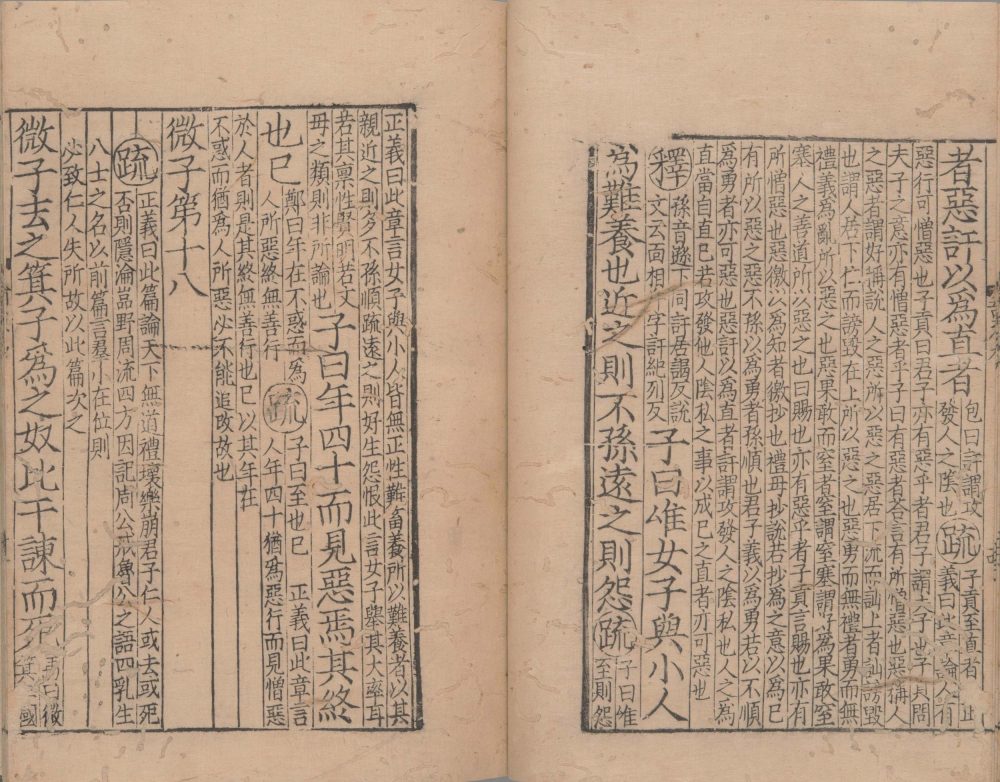 者惡訐以為直者 包曰訐謂攻發人之陰也 疏 子貢至直者 正義曰此章論人有
惡行可憎惡也子貢曰君子亦有惡乎者君子謂夫子也子貢問
夫子之意亦有憎惡者乎子曰有惡者荅言有所憎惡也惡稱人
之惡者謂好稱說人之惡所以惡之惡居下流而訕上者訕謗毀
也謂人居下仁而謗毀在上所以惡之也惡勇而無禮者勇而無
禮義為亂所以惡之也惡果敢而窒者窒謂窒塞謂好為果敢窒
塞人之善道所以惡之也曰賜也亦有惡乎者子貢言賜也亦有
所憎惡也惡徼以為知者徼抄也禮毋抄說若抄為之意以為己
有所以惡之惡不孫以為勇者孫順也君子義以為勇若以不順
為勇者亦可惡也惡訐以為直者訐謂攻發人之陰私也人之為
直當自直己若攻發他人陰私之事以成己之直者亦可惡也
釋 孫音遜下同訐居謁反說文云面相 字訐紀列反 子曰唯女子與小人
為難養也近之則不孫遠之則怨 疏 子曰惟至則怨
正義曰此章言女子與小人皆無正性難畜養所以難養者以其
親近之則多不孫順疏遠之則好生怨恨此言女子舉其大率耳
若其稟性賢明若文
母之類則非所論也 子曰年四十而見惡焉其終
也已 鄭曰年在不惑而為人所惡終無善行 疏 子曰至也已 正義曰此章言人年四十猶為惡行而見憎惡
於人者則是其終無善行也已以其年在
不惑而猶為人所惡必不能追改故也
微子第十八
疏 正義曰此篇論天下無道禮壞樂崩君子仁人或去或死
否則隱淪嵓野周流四方因記周公戒魯公之語四乳生
八士之名以前篇言羣小在位則
必致仁人失所故以此篇次之
微子去之箕子為之奴比干諫而死 馬曰微箕二國